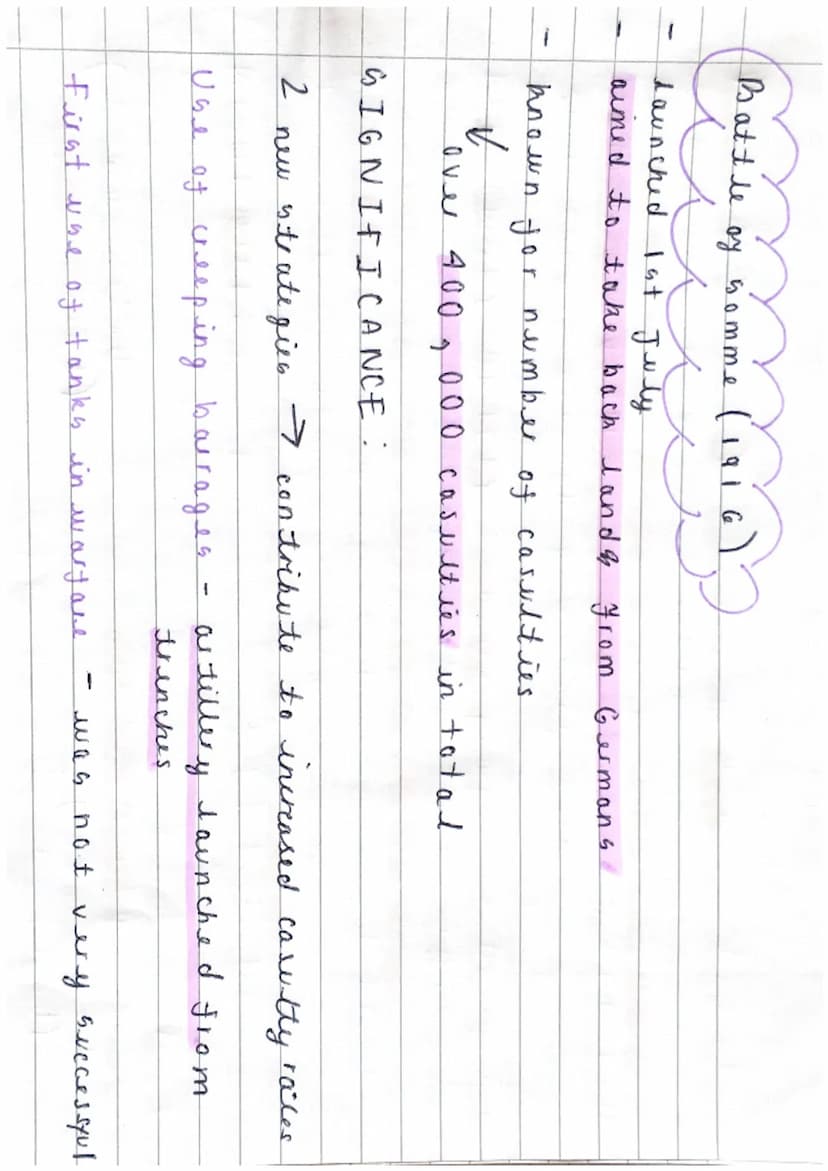 Battle of Somme (1916)
- launched 1st July
- aimed to take back lands from Germans
- known for number of casulties
over 400,000 casulties in total
SIGNIFICANCE:
2 new strategies → contribute to increased casultty rates
Use of creeping barrages - artillery launched from
trenches
First use of tanks in warfare - was not very successful